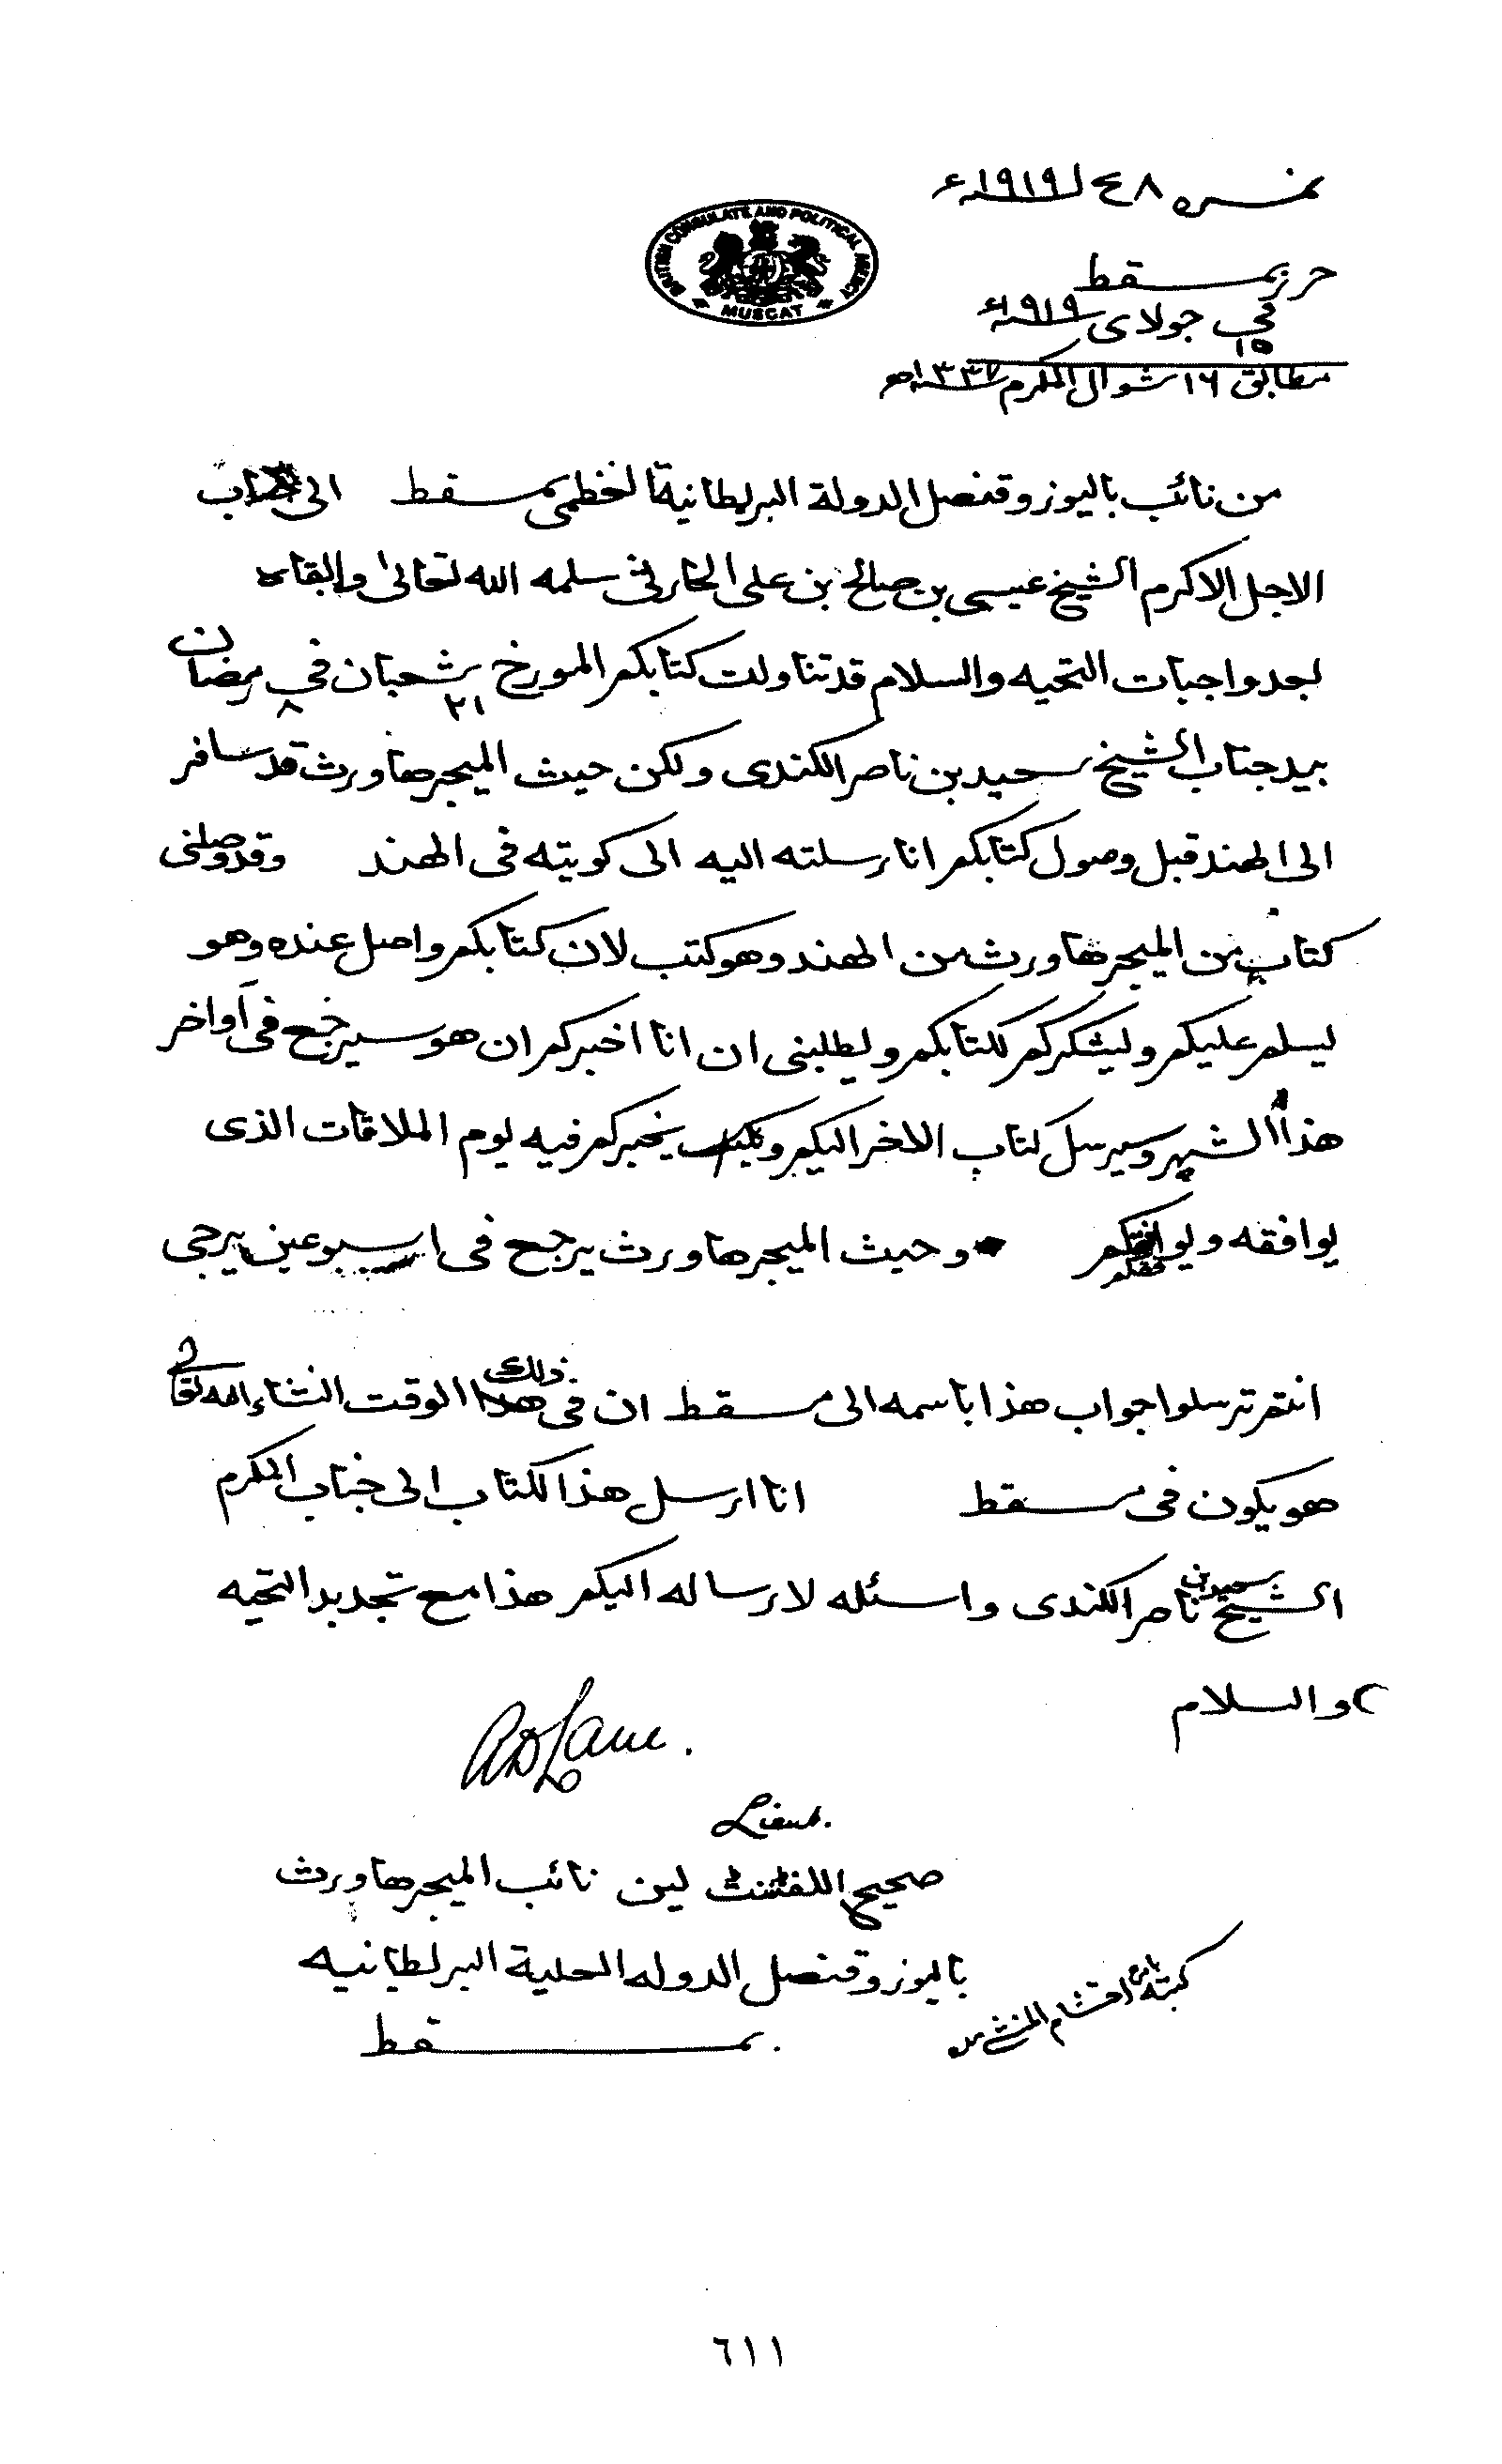 نمره ٤٨ لـ ١٩١٩ء
BRITISH CONSULATE AND POLITICAL AGENCY
MUSCAT
حرر بمسقط
في ١٥ جولاى ١٩١٩ء
مطابق ١٦ شوال المكرم ١٣٣٧ھ
من نائب باليوز وقنصل الدولة البريطانية العظمى بمسقط الى جناب
الاجل الاكرم الشيخ عيسى بن صالح بن على الحارثى سلمه الله تعالى وابقاه
بعد واجبات التحيه والسلام قد تناولت كتابكم المورخ ٢١ شعبان في ٨ رمضان
بيد جناب الشيخ سعيد بن ناصر الكندى ولكن حيث الميجر هاورث قد سافر
الى الهند قبل وصول كتابكم انا رسلته اليه الى كويته فى الهند وقد وصلنى
كتاب من الميجر هاورث من الهند وهو كتب لان كتابكم واصل عنده وهو
يسلم عليكم ويشكركم لكتابكم ويطلبنى ان انا اخبركم ان هو سيرجع فى آواخر
هذا الشهر وسيرسل كتاب الاخر اليكم يخبركم فيه يوم الملاقات الذى
يوافقه ويوافقكم وحيث الميجر هاورث يرجع فى اسبوعين يرجى
انتم ترسلوا جواب هذا باسمه الى مسقط ان فى ذلك الوقت انشاء الله تعالى
هو يكون فى مسقط انا ارسل هذا الكتاب الى جناب المكرم
الشيخ سعيد بن ناصر الكندى واسئله لارساله اليكم هذا مع تجديد التحيه
والسلام
Lieut.
صحيح اللفٹننٹ لين نائب الميجر هاورث
باليوز وقنصل الدوله العلية البريطانيه
بمسقط
كتبته بامره احتشام المنشى
٦١١